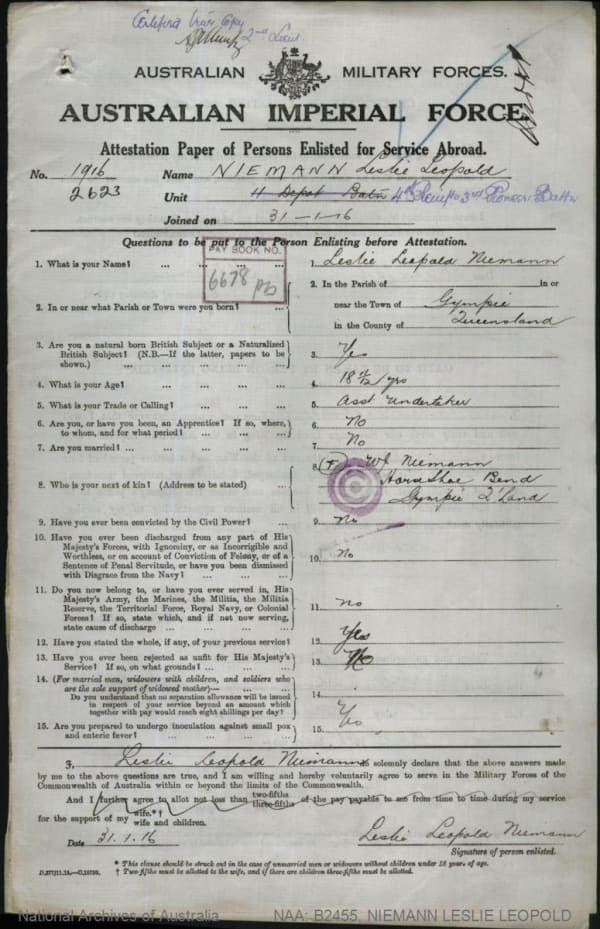 Certified True Copy
2nd Lieut.
AUSTRALIAN MILITARY FORCES.
AUSTRALIAN IMPERIAL FORCE.
Attestation Paper of Persons Enlisted for Service Abroad.
No. 1916 Name NIEMANN Leslie Leopold
2623 Unit 11 Depot Batn 4th Reinf to 3rd Pioneer Battn
Joined on 31-1-16
Questions to be put to the Person Enlisting before Attestation.
PAY BOOK NO.
6678
1. What is your Name? ... ... ... ... 1. Leslie Leopold Niemann
2. In or near what Parish or Town were you born? ... 2. In the Parish of in or
near the Town of Gympie
in the County of Queensland
3. Are you a natural born British Subject or a Naturalized
British Subject? (N.B.—If the latter, papers to be
shown.) ... ... ... ... 3. Yes
4. What is your Age? ... ... ... ... 4. 18 4/12 yrs
5. What is your Trade or Calling? ... ... ... 5. Asst Undertaker
6. Are you, or have you been, an Apprentice? If so, where,
to whom, and for what period? ... ... ... 6. No
7. Are you married? ... ... ... ... 7. No
8. Who is your next of kin? (Address to be stated) ... 8. (F) W. Niemann
Horse Shoe Bend
Gympie Q'Land
9. Have you ever been convicted by the Civil Power? ... 9. No
10. Have you ever been discharged from any part of His
Majesty's Forces, with Ignominy, or as Incorrigible and
Worthless, or on account of Conviction of Felony, or of a
Sentence of Penal Servitude, or have you been dismissed
with Disgrace from the Navy? ... ... ... 10. No
11. Do you now belong to, or have you ever served in, His
Majesty's Army, the Marines, the Militia, the Militia
Reserve, the Territorial Force, Royal Navy, or Colonial
Forces? If so, state which, and if not now serving,
state cause of discharge ... ... ... 11. No
12. Have you stated the whole, if any, of your previous service? 12. Yes
13. Have you ever been rejected as unfit for His Majesty's
Service? If so, on what grounds? ... ... ... 13. No
14. (For married men, widowers with children, and soldiers who
are the sole support of widowed mother)—
Do you understand that no separation allowance will be issued
in respect of your service beyond an amount which
together with pay would reach eight shillings per day? 14.
15. Are you prepared to undergo inoculation against small pox
and enteric fever? ... ... ... ... 15. Yes
I, Leslie Leopold Niemann do solemnly declare that the above answers made
by me to the above questions are true, and I am willing and hereby voluntarily agree to serve in the Military Forces of the
Commonwealth of Australia within or beyond the limits of the Commonwealth.
And I further agree to allot not less than two-fifths three-fifths of the pay payable to me from time to time during my service
for the support of my wife.*† wife and children.
Date 31.1.16 Leslie Leopold Niemann
Signature of person enlisted.
* This clause should be struck out in the case of unmarried men or widowers without children under 18 years of age.
† Two-fifths must be allotted to the wife, and if there are children three-fifths must be allotted.
National Archives of Australia NAA: B2455, NIEMANN LESLIE LEOPOLD